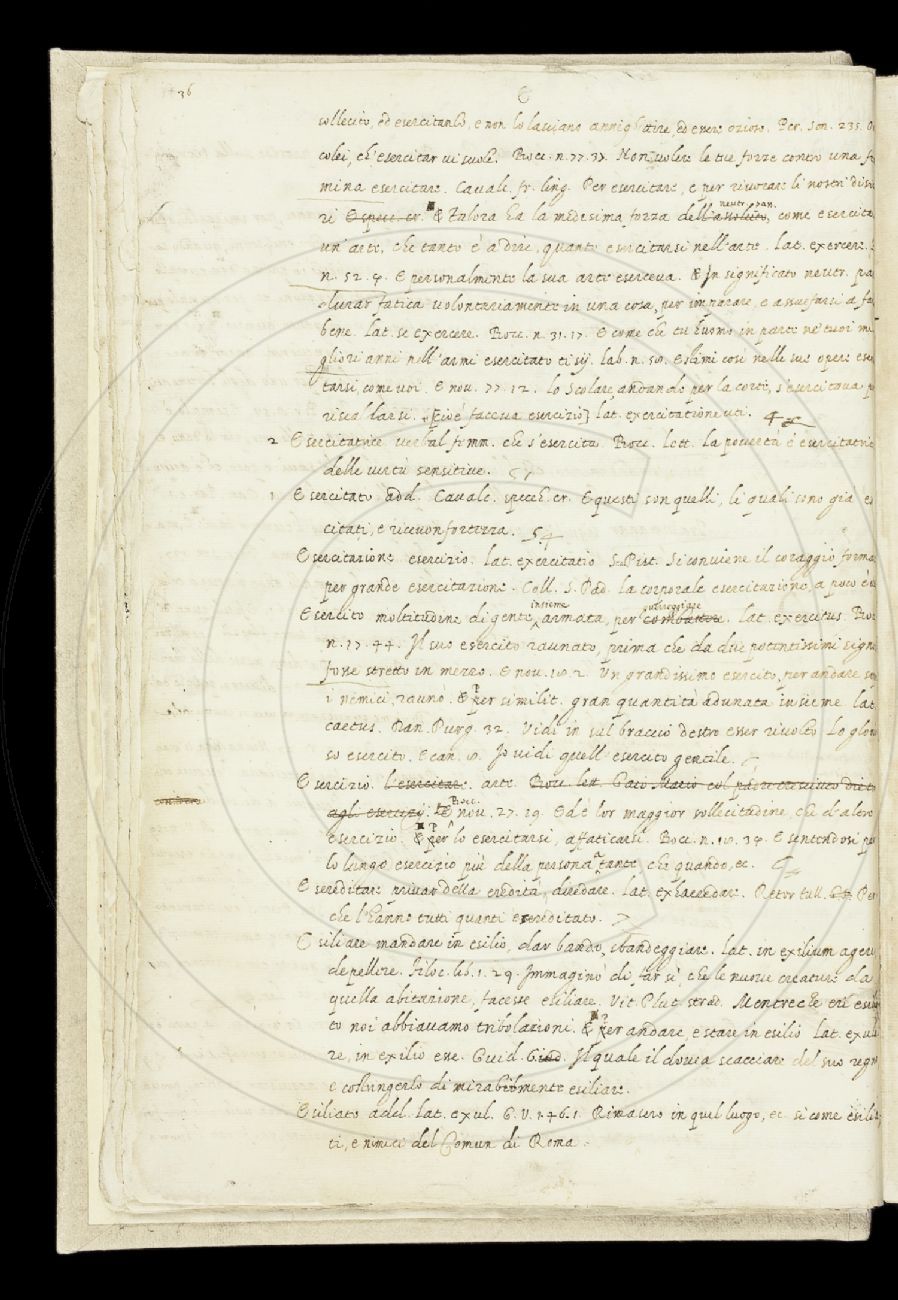 36
E
sollecito, ed esercitanlo, e non lo lasciano annighittire, ed essere ozioso. Per. Son. 235.
colei, ch'esercitar vi suole. Bocc. n. 77. 31. Non volere le tue forze contro una fe
mina esercitare. Cavalc. fr. ling. Per esercitare, e per rivocare li nostri disi
rj E specc. cr. E Talora ha la medesima forza dell'assoluto, neutr. pas. come esercita
un'arte, che tanto è a dire, quanto esercitarsi nell'arte. Lat. exercere.
n. 52. 4. E personalmente la sua arte eserceva. E In significato neutr. pa
durar fatica volontariamente in una cosa, per imparare, e assuefarsi a fa
bene. Lat. se exercere. Bocc. n. 31. 17. E come che tu huomo in parte ne' tuoi mi
gliori anni nell'armi esercitato ti sij. Lab. n. 50. Eslimi così nelle sue opere eser
tarsi, come voi. E nov. 77. 12. Lo Scolare, andando per la corte, s'esercitava p
riscaldarsi. [cioè faceva esercizio] lat. exercitatione uti.
2 Esercitatrice verbal femm. che s'esercita. Bocc. lett. La povertà è esercitatrice
delle vertù sensitive.
1 Esercitato add. Cavalc. specch. cr. E questi son quelli, li quali sono già es
citati, e ricevon fortezza.
Esercitazione esercizio. lat. exercitatio S. Pist. Si conviene il coraggio forma
per grande esercitazione. Coll. S. Pad. la corporale esercitazione, a poco è u
Esercito moltitudine di gente insieme armata, per combattere guerreggiare. lat. exercitus. Boc
n. 77. 44. Il suo esercito raunato, prima che da due potentissimi signo
fosse stretto in mezzo. E nov. 10. 2. Un grandissimo esercito, per andare so
i nemici, raunò. E per similit. gran quantità adunata insieme lat.
caetus. Dan. Purg. 32. Vidi in sul braccio destro esser rivolto Lo glorio
so esercito. E can. 8. Io vidi quell'esercito gentile.
Esercizio l'esercitare. arte. Bocc. lett.
agl. esercizj. E Bocc. nov. 27. 19. Ed è lor maggior sollecitudine, che d'altro
esercizio. E per lo esercitarsi, affaticarsi. Bocc. n. 10. 34. E sentendosi per
lo lungo esercizio più della persona atante che quando, ec.
Esereditare privar della eredità, diredare. lat. exhaeredare. Retor. tull. Per
che l'hanno tutti quanti esereditato.
Esiliare mandare in esilio, dar bando, sbandeggiare. lat. in exilium agere
depellere. Filoc. lib. 1. 29. Immaginò di far sì, che le nuove creature da
quella abitazione, facesse esiliare. Vit. Plut. strad. Mentreche era esilia
to noi abbiavamo tribolazioni. E Per andare, e stare in esilio lat. exula
re, in exilio esse. Ovid. Il quale il dovea scacciare del suo regno
e costringerlo di mirabilmente esiliare.
Esiliato add. lat. exul. G. V. 1. 46. 1. Rimasero in quel luogo, ec. sì come esilia
ti, e nimici del Comun di Roma.